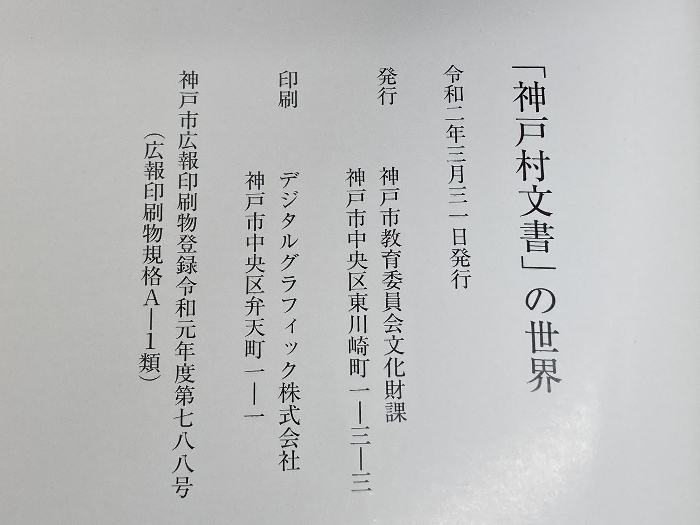 「神戸村文書」の世界
令和二年三月三一日発行
発行　　神戸市教育委員会文化財課
神戸市中央区東川崎町一―三―三
印刷　　デジタルグラフィック株式会社
神戸市中央区弁天町一―一
神戸市広報印刷物登録令和元年度第七八八号
（広報印刷物規格Ａ―１類）